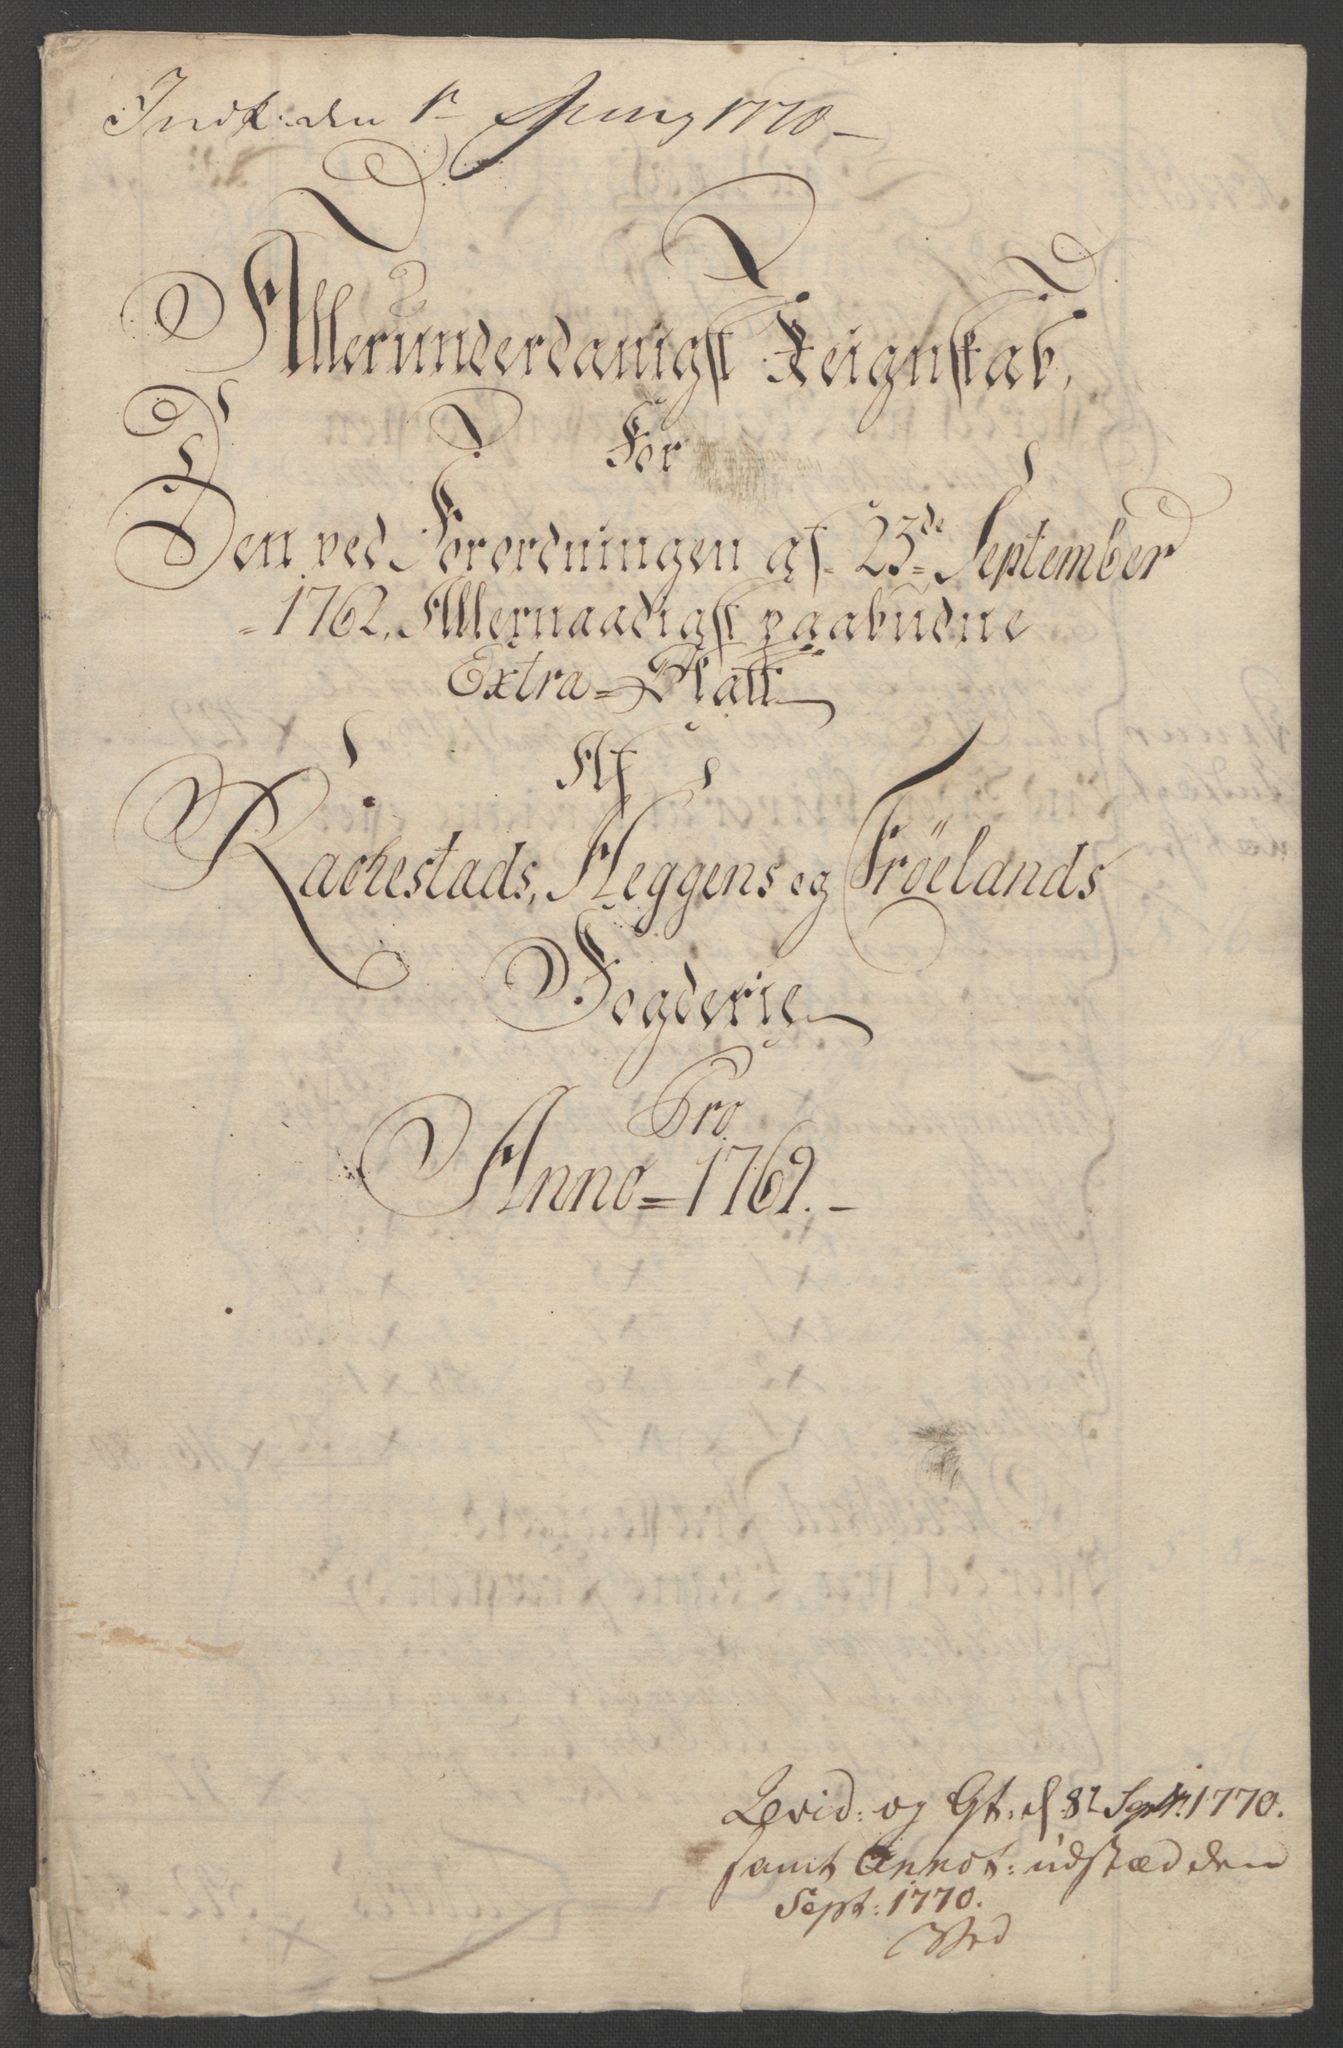 Indk: den 1r Juny 1770
Allerunderdanigst Reignskab,
For
Den ved Forordningen af 23de September
1762, Allernaadigst paabudne
Extra-Skatt
Af
Rachestads, Heggens og Fröelands
Fogderie
Pro
Anno 1769.
Revid: og Qt: d: 8t Septr. 1770.
samt Annot: udstæd den
Sept: 1770.